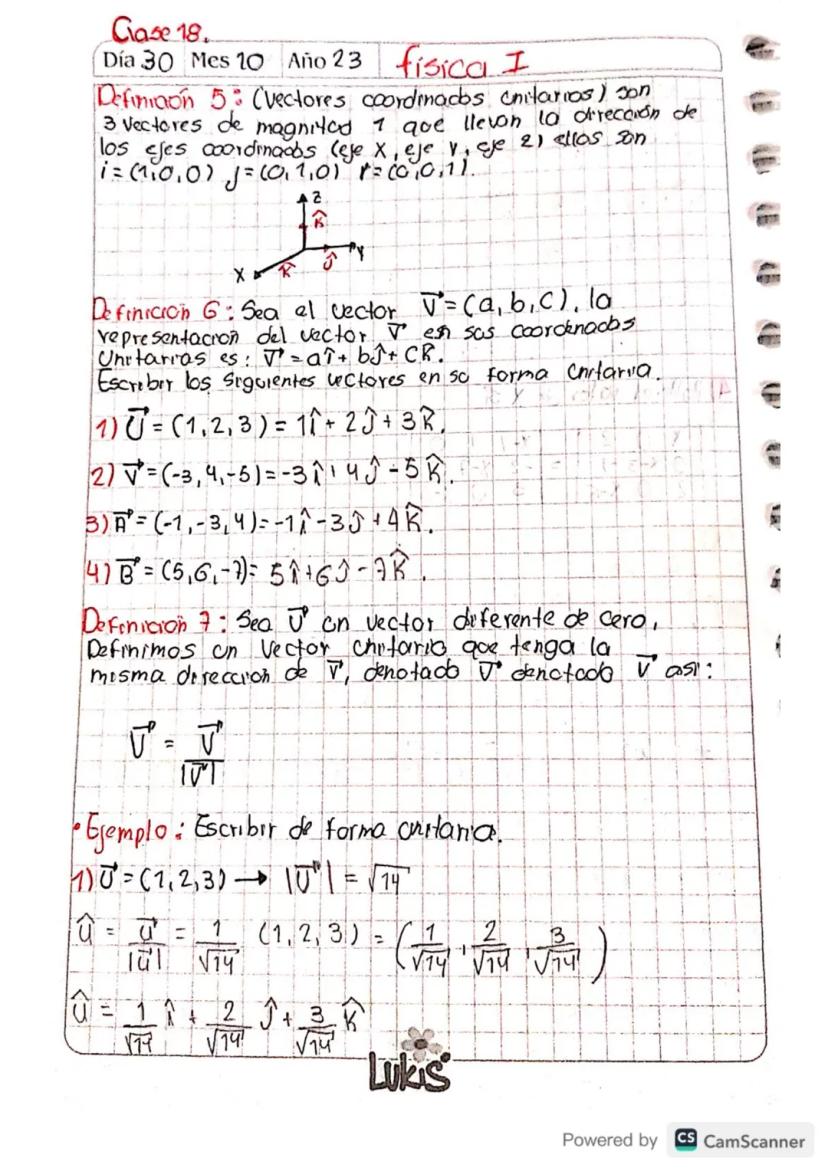 Clase 18.
Día 30 Mes 10 Año 23 física I
Definición 5: (Vectores coordinados unitarios) son
3 vectores de magnitud 1 que llevan la dirección de
los ejes coordinados (eje x, eje y, eje z) ellos son
i = (1,0,0) j = (0,1,0) k = (0,0,1).
Z
k̂
Y
X k̂ ĵ
Definición 6: Sea el vector V⃗ = (a, b, c), la
representación del vector V⃗ en sus coordenados
Unitarias es: V⃗ = aî + bĵ + ck̂.
Escribir los siguientes vectores en su forma unitaria.
1) U⃗ = (1, 2, 3) = 1î + 2ĵ + 3k̂.
2) V⃗ = (-3, 4, -5) = -3î + 4ĵ - 5k̂.
3) A⃗ = (-1, -3, 4) = -1î - 3ĵ + 4k̂.
4) B⃗ = (5, 6, -7) = 5î + 6ĵ - 7k̂.
Definición 7: Sea U⃗ un vector diferente de cero,
Definimos un vector unitario que tenga la
misma dirección de V⃗, denotado U⃗ denotado V⃗ así:
U⃗ = U⃗ / |U⃗|
• Ejemplo: Escribir de forma unitaria.
1) U⃗ = (1, 2, 3) → |U⃗| = √14
û = u⃗/|u⃗| = 1/√14 (1, 2, 3) = (1/√14, 2/√14, 3/√14)
û = 1/√17 î + 2/√14 ĵ + 3/√14 k̂
Lukis
Powered by CS CamScanner